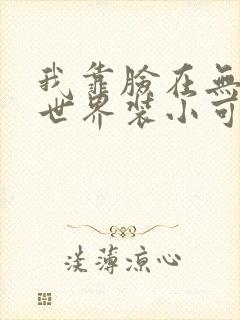 我靠臉在無
世界裝小可
淡薄涼心